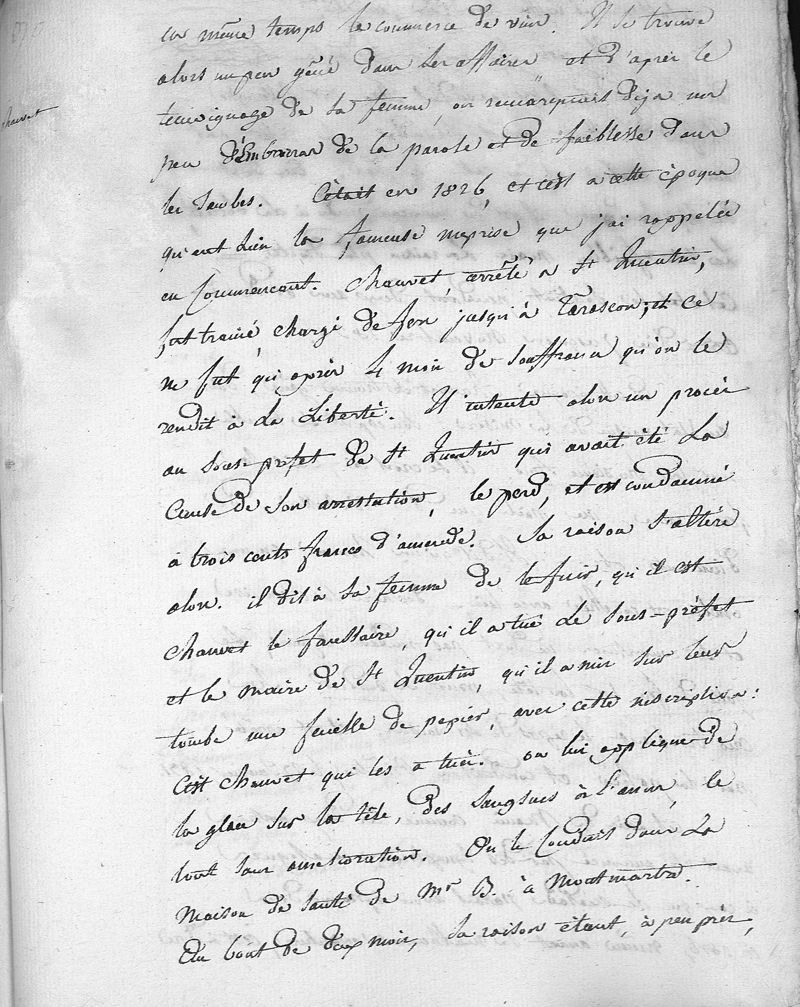 Chauvet
en même temps le commerce de vins. Il se trouve
alors un peu gêné dans ses affaires et d'après le
témoignage de sa femme, on remarquais déja un
peu d'Embarras de la parole et de faiblesse dans
les Jambes. C'était en 1826, et c'est a cette époque
qu'eut Lieu la fameuse meprise que j'ai rappelée
en Commencent. Chauvet, arrêté a St Quentin,
fut trainé chargé de fers jusqu'à Tarascon, et ce
ne fut qu'après 4 mois de souffrances qu'on le
rendit à La Liberté. Il intente alors un procès
au sous-préfet de St Quentin qui avait été La
Cause de son arrestation, le perd, et est condamné
à trois cents francs d'amende. Sa raison s'altère
alors. il dit à sa femme de le fuir, qu'il est
Chauvet le faussaire, qu'il a tué Le Sous-préfet
et le maire de St Quentin, qu'il a mis sur leur
tombe une feuille de papier, avec cette inscription:
C'est Chauvet qui les a tués. on lui applique de
la glace sur la tête, des sangsues à L'anus, le
tout sans amelioration. On le Conduit dans La
Maison de santé de Mr B. à Montmartre.
Au bout de deux mois, sa raison étant, à peu près,